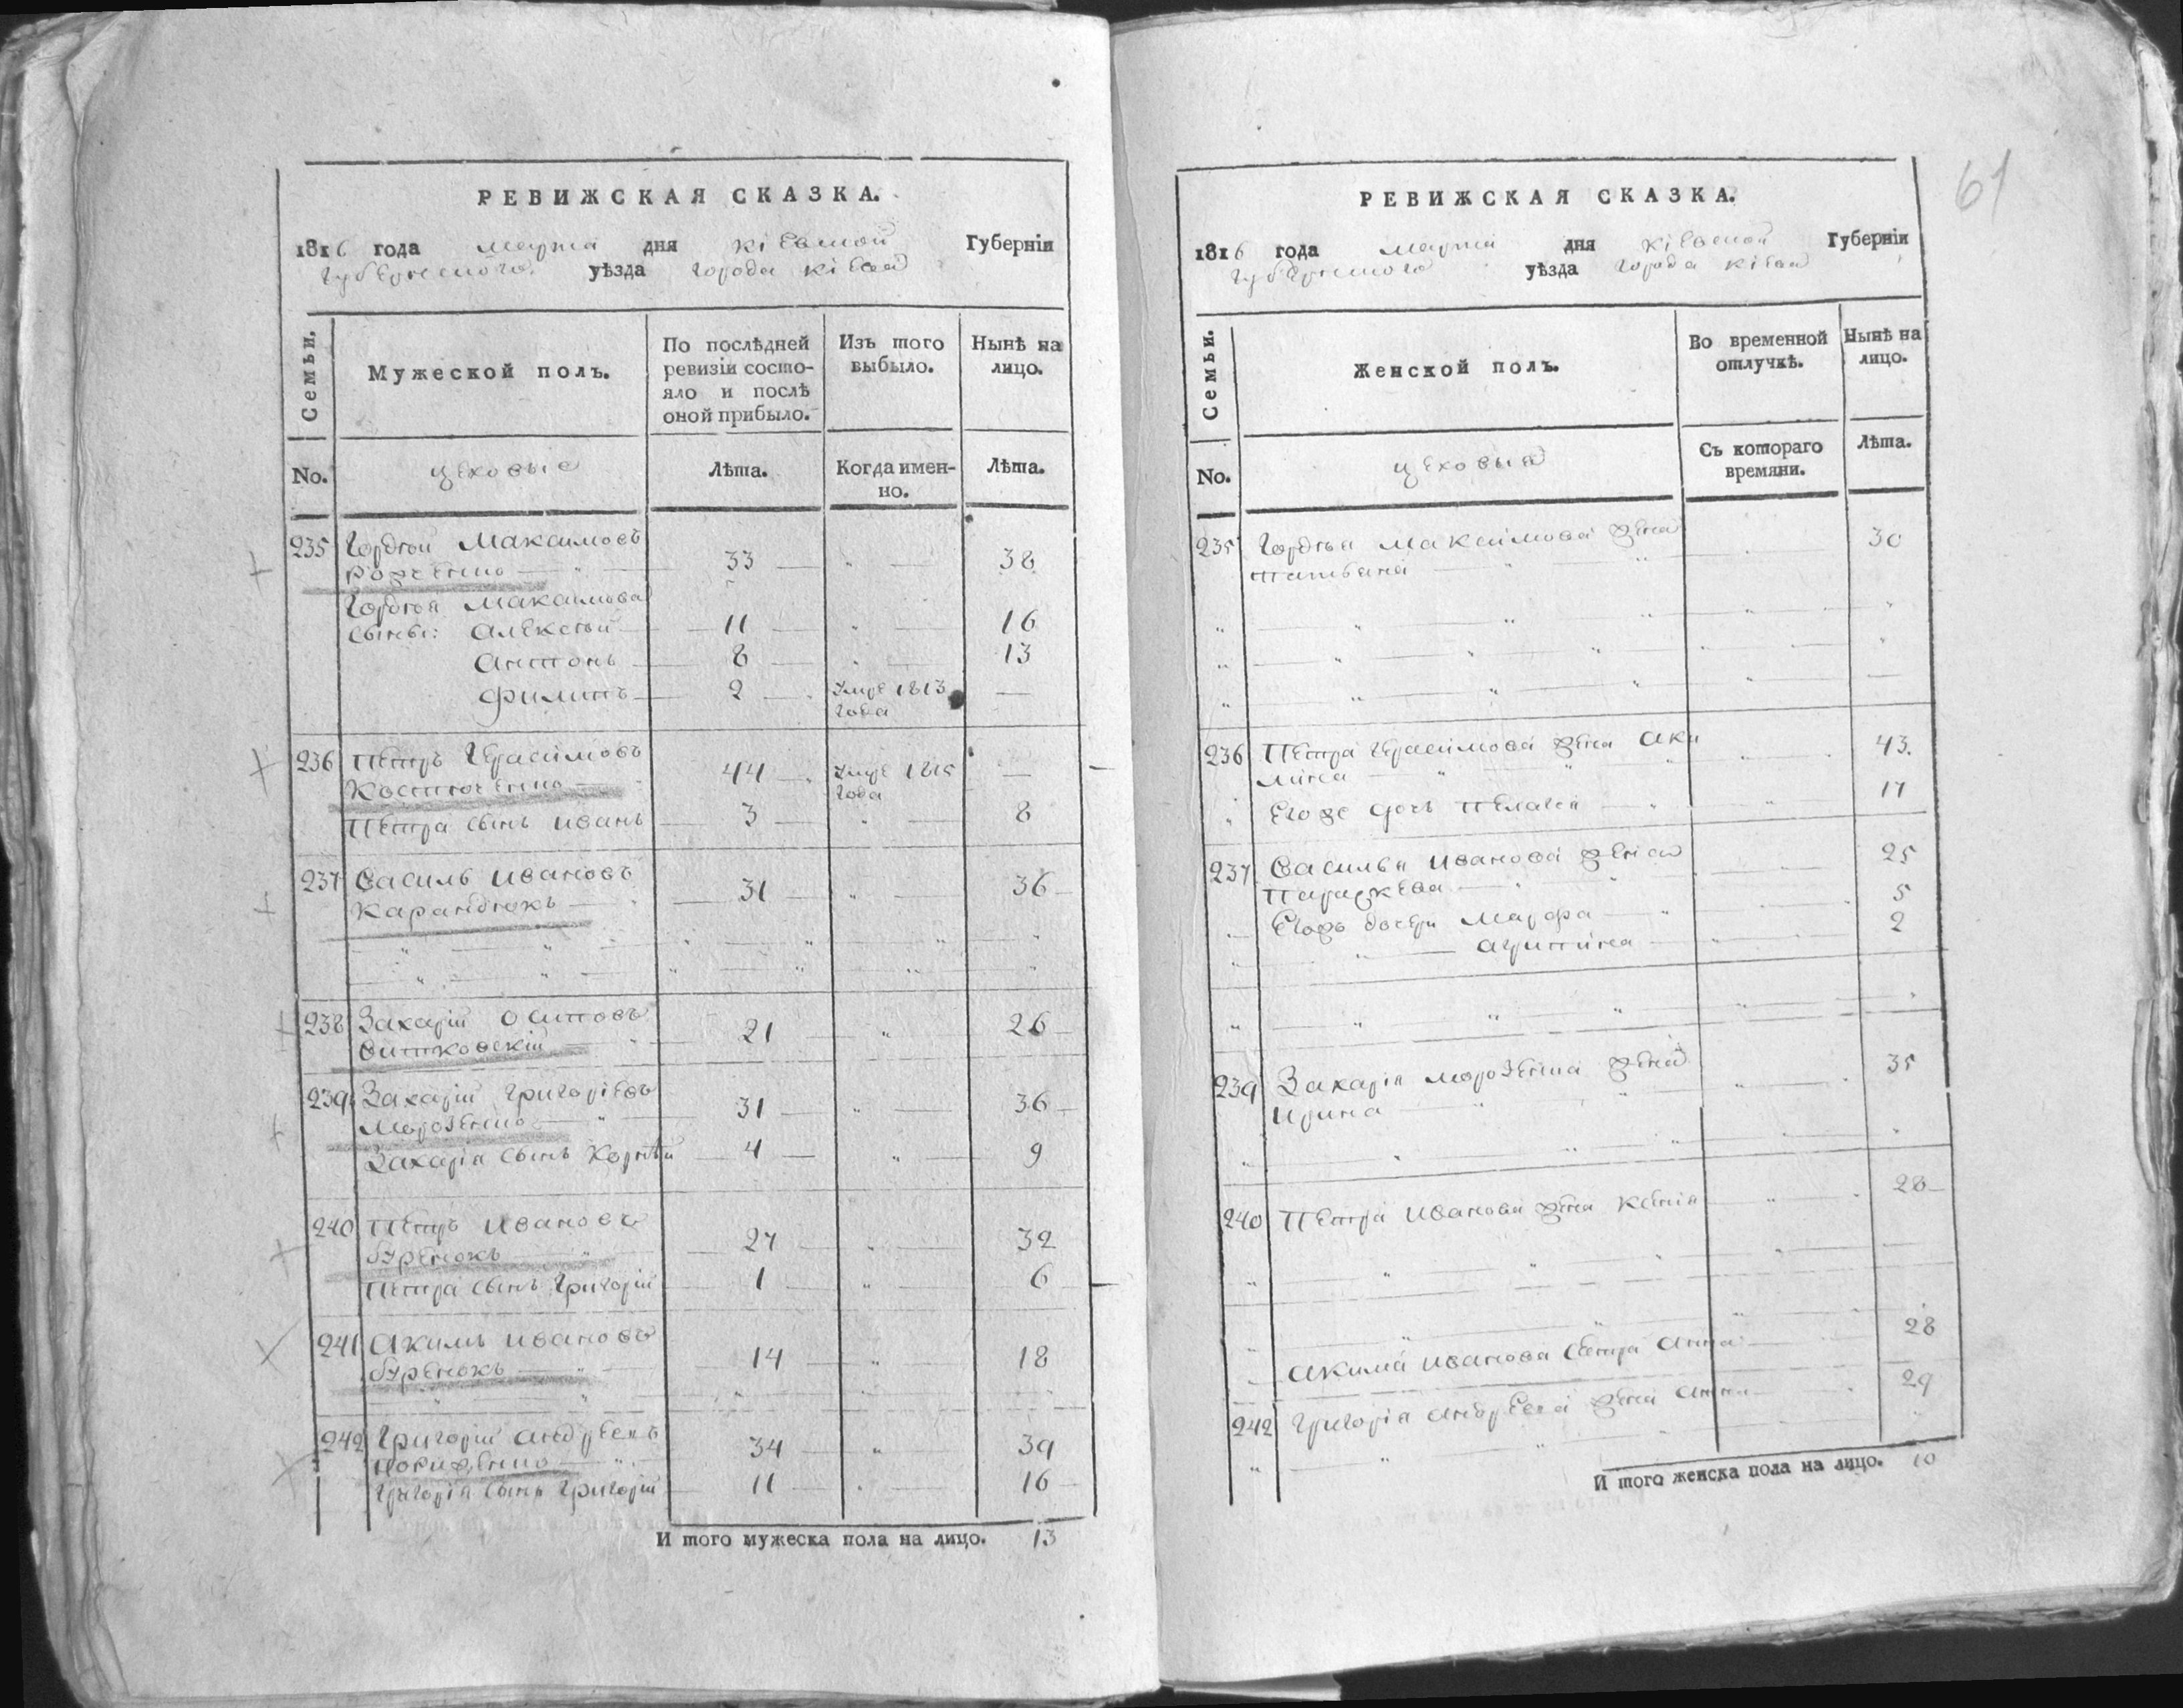 РЕВИЖСКАЯ СКАЗКА.
1816 года марта дня Кіевской Губерніи
Губернского уѣзда города Кіева
Семьи.
Мужеской полъ.
По послѣдней
ревизіи состо-
яло и послѣ
оной прибыло.
Изъ того
выбыло.
Нынѣ на
лицо.
No.
цеховые
Лѣта.
Когда имен-
но.
Лѣта.
235 Гордѣй Максимовъ
33 38
Гордѣя Максимова
сыны: Алексѣй 11 16
Антонъ 8 13
Филипъ 2 Умре 1813
года
236 Петръ Герасимовъ
Костюченко 44 Умре 1815
года
Петра сынъ Иванъ 3 8
237 Василь Ивановъ
Карандюкъ 31 36
238 Захарій Осиповъ
Витковскій 21 26
239 Захарій Григоріевъ
Морозенко 31 36
Захарія сынъ Корнѣй 4 9
240 Петръ Ивановъ
27 32
Петра сынъ Григорій 1 6
241 Акимъ Ивановъ
14 18
242 Григорій Андреевъ
34 39
Григорія сынъ Григорій 11 16
И того мужеска пола на лицо. 13
61
РЕВИЖСКАЯ СКАЗКА.
1816 года марта дня Кіевской Губерніи
Губернского уѣзда города Кіева
Семьи.
Женской полъ.
Во временной
отлучкѣ.
Нынѣ на
лицо.
No.
цеховыя
Съ котораго
времяни.
Лѣта.
235 Гордѣя Максимова жена 30
Татьяна
236 Петра Герасимова жена Аки 43.
лина
Егоже дочь Пелагея 17
237 Василья Иванова жена 25
Параскева
Егожъ дочери Марфа 5
Агрипина 2
239 Захарія Морозенка жена 35
Ирина
240 Петра Иванова жена Ксенія 28
Акима Иванова сестра Анна 28
242 Григорія Андреева жена Анна 29
И того женска пола на лицо. 10